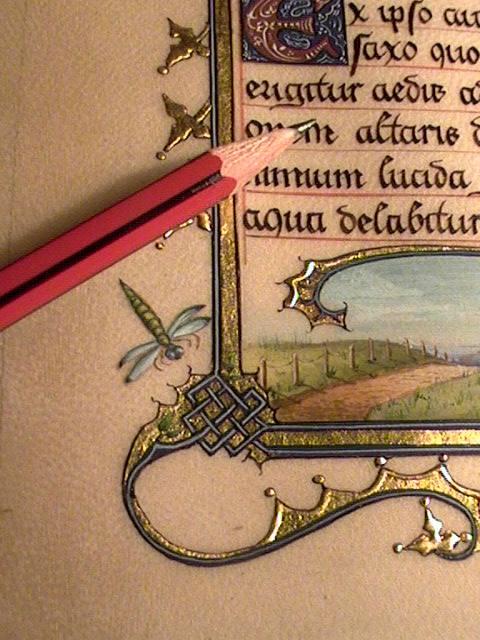 Ex ipso cur
saxo quo
erigitur aedis a
altaris d
nimium lucida
aqua delabitur